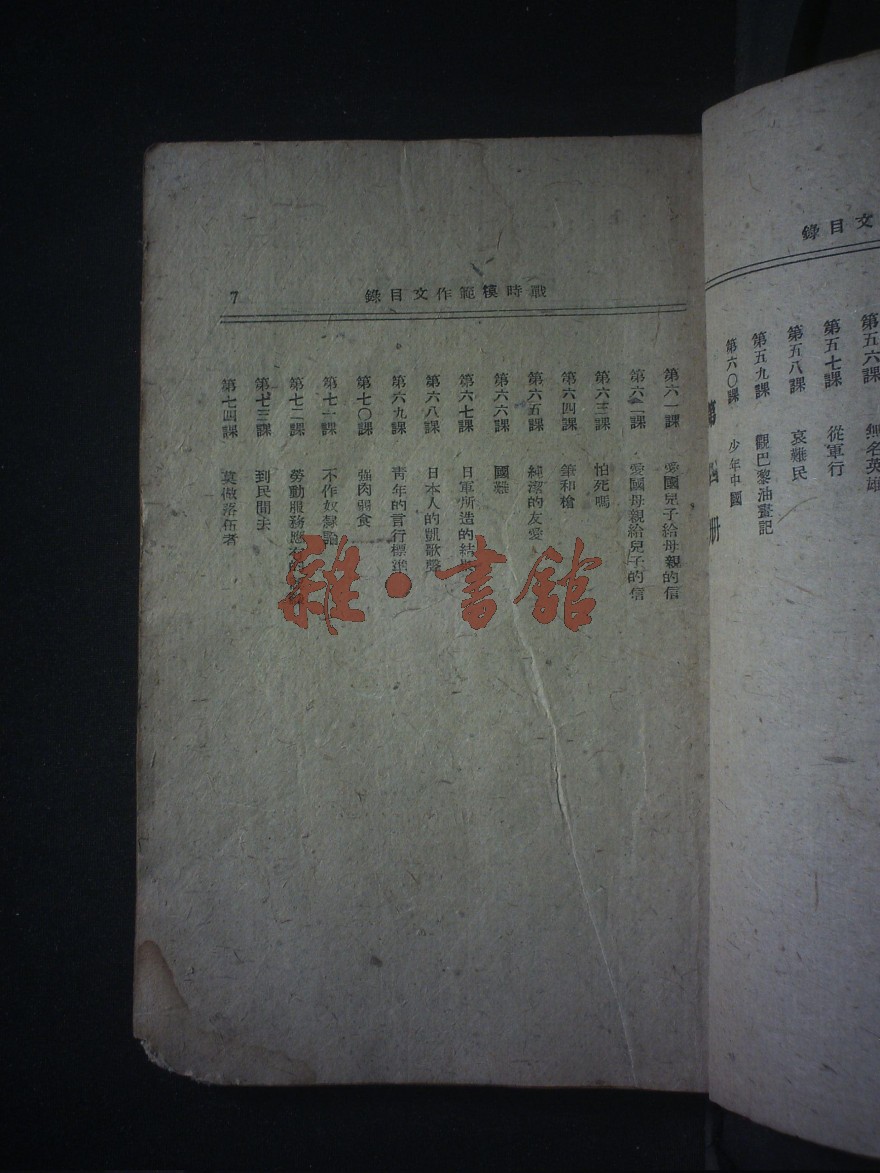 文目錄
無名英雄
第五六課
第五七課 從軍行
第五八課 哀難民
第五九課 觀巴黎油畫記
第六〇課 少年中國
第四册
戰時模範作文目錄 7
第六一課 愛國兒子給母親的信
第六二課 愛國母親給兒子的信
第六三課 怕死嗎
第六四課 筆和槍
第六五課 純潔的友愛
第六六課 國難
第六七課 日軍所造的結
第六八課 日本人的凱歌聲
第六九課 靑年的言行標準
第七〇課 強肉弱食
第七一課 不作奴隸
第七二課 勞動服務應
第七三課 到民間去
第七四課 莫做落伍者
雜·書館